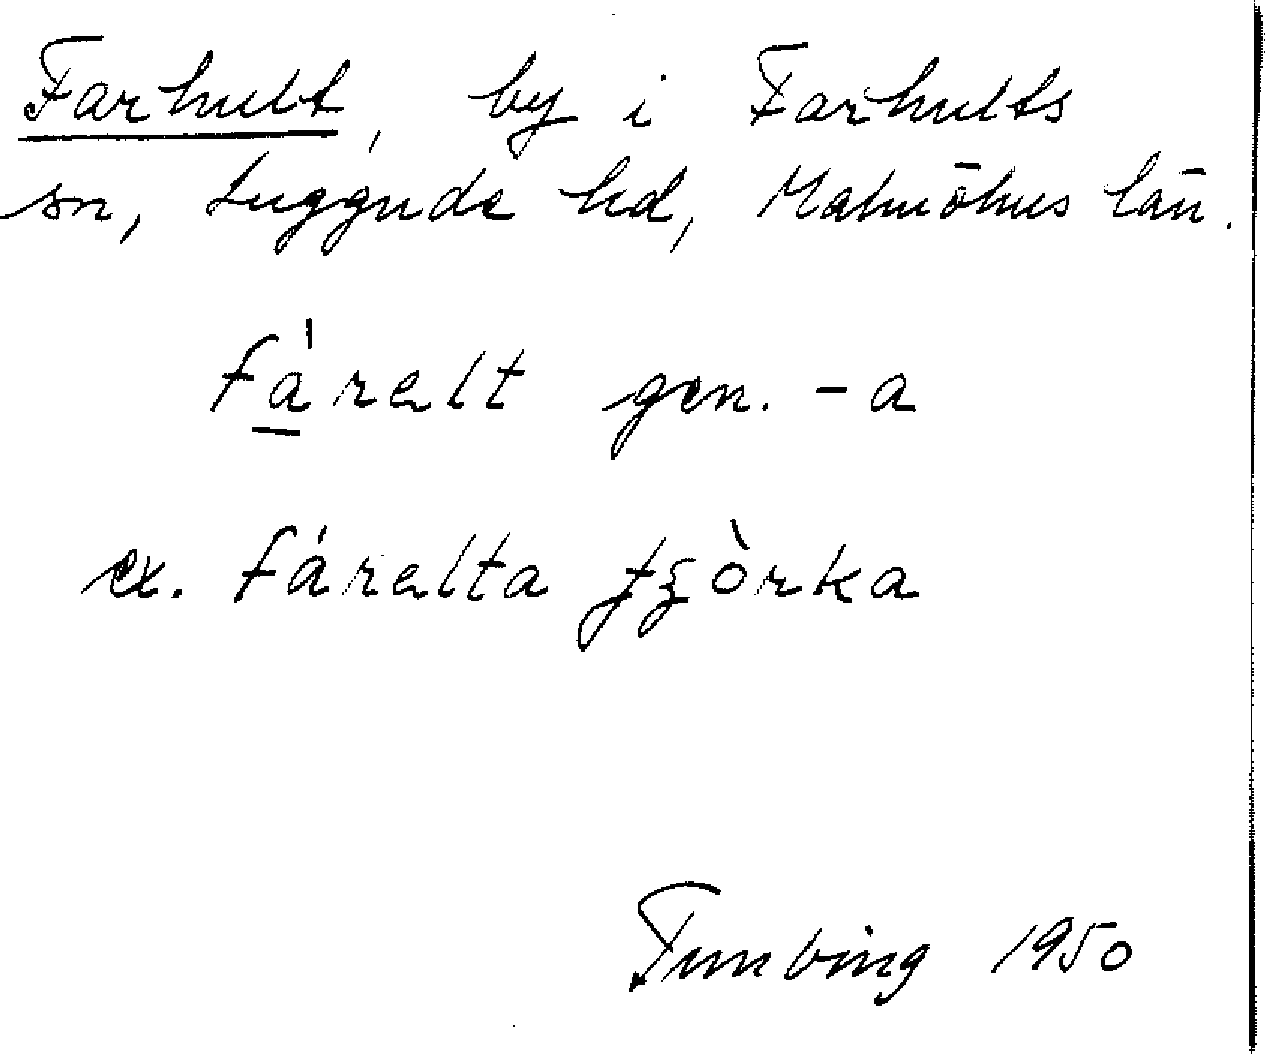 Farhult, by i Farhults
sn, Luggude hd, Malmöhus län.
fáralt gen. -a
ex. fáralta ʈʂòrka
1950